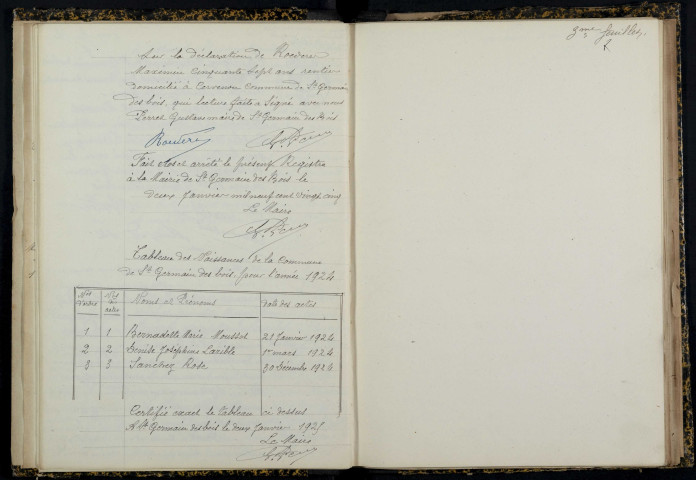 Sur la déclaration de Rouvere
Maximin Cinquante Sept ans rentier
domicilié à Corvesson Commune de St Germain
des bois, qui lecture faite a Signé avec nous
Perrot Gustave maire de St Germain des Bois
Rouvere
Fait clos et arrêté le présent Registre
à la Mairie de St Germain des Bois le
deux Janvier mil neuf cent vingt cinq
Le Maire
Tableau des Naissances de la Commune
de St Germain des bois, pour l'année 1924
Nos d'ordre Nos des actes Noms et Prénoms date des actes
1 1 Bernadette Marie Moussot 21 Janvier 1924
2 2 Denise Joséphine Lacible 1er mars 1924
3 3 Sanchez Rose 30 Décembre 1924
Certifié exact le tableau ci dessus
A St Germain des bois le deux Janvier 1925
Le Maire
3eme feuillet